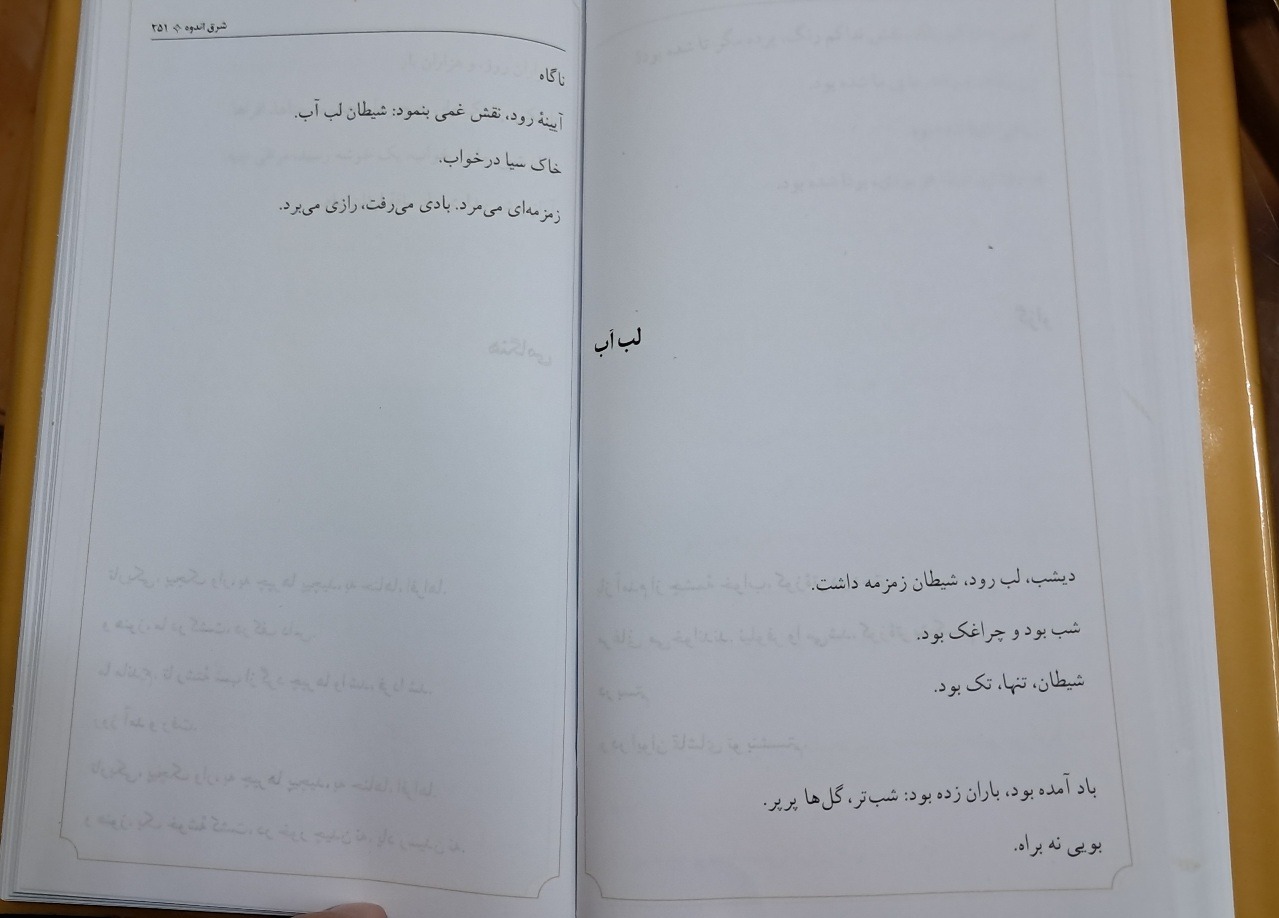 لب آب
دیشب، لب رود، شیطان زمزمه داشت.
شب بود و چراغک بود.
شیطان، تنها، تک بود.
باد آمده بود، باران زده بود: شب‌تر، گل‌ها پرپر.
بویی نه براه.
شرق اندوه ۲۵۱
ناگاه
آیینهٔ رود، نقش غمی بنمود: شیطان لب آب.
خاک سیا درخواب.
زمزمه‌ای می‌مرد. بادی می‌رفت، رازی می‌برد.